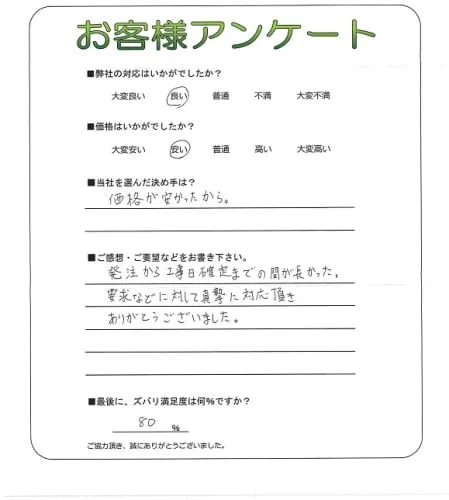 お客様アンケート
■弊社の対応はいかがでしたか？
大変良い 良い 普通 不満 大変不満
■価格はいかがでしたか？
大変安い 安い 普通 高い 大変高い
■当社を選んだ決め手は？
価格が安かったから。
■ご感想・ご要望などをお書き下さい。
発注から工事日確定までの間が長かった。
要求などに対して真摯に対応頂き
ありがとうございました。
■最後に、ズバリ満足度は何％ですか？
80 ％
ご協力頂き、誠にありがとうございました。